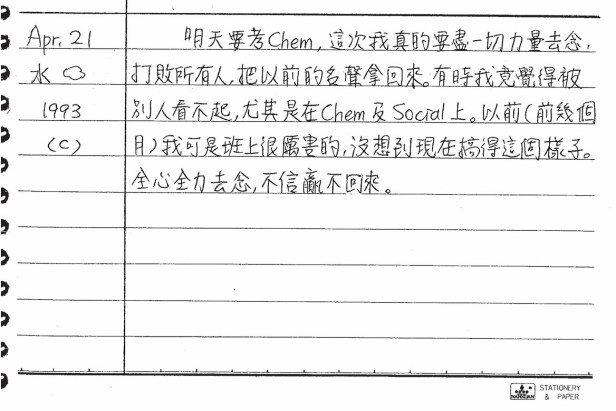 Apr. 21 明天要考Chem,這次我真的要盡一切力量去念,
水 打敗所有人,把以前的名聲拿回來。有時我竟覺得被
1993 別人看不起,尤其是在Chem及Social上。以前(前幾個
(C) 月)我可是班上很厲害的,沒想到現在搞得這個樣子。
全心全力去念,不信贏不回來。
STATIONERY
& PAPER